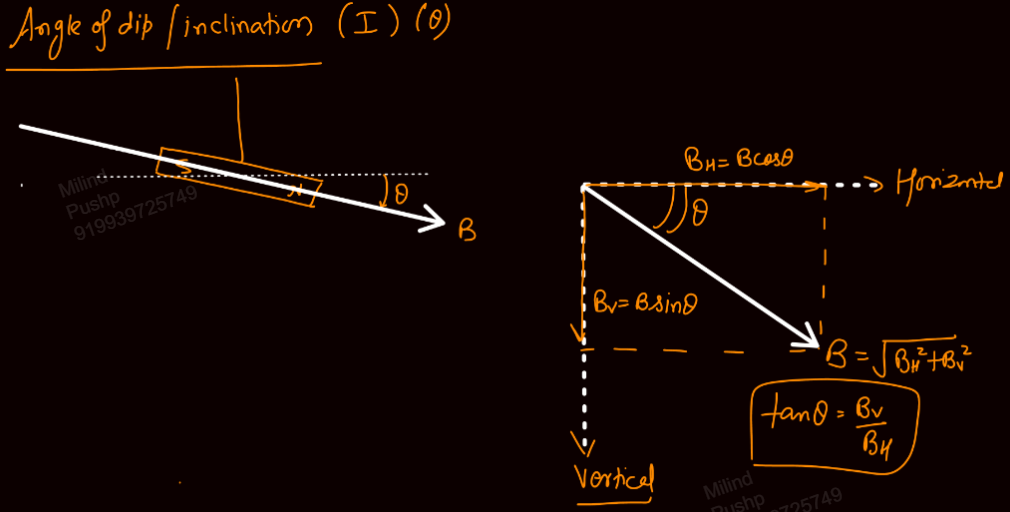 Angle of dip/inclination (I) (θ)
S
N
θ
B
Milind
Pushp
919939725749
B_H = Bcosθ
Horizontal
θ
B_V = Bsinθ
B = √B_H² + B_V²
tanθ = B_V / B_H
Vertical
Milind
Pushp
725749